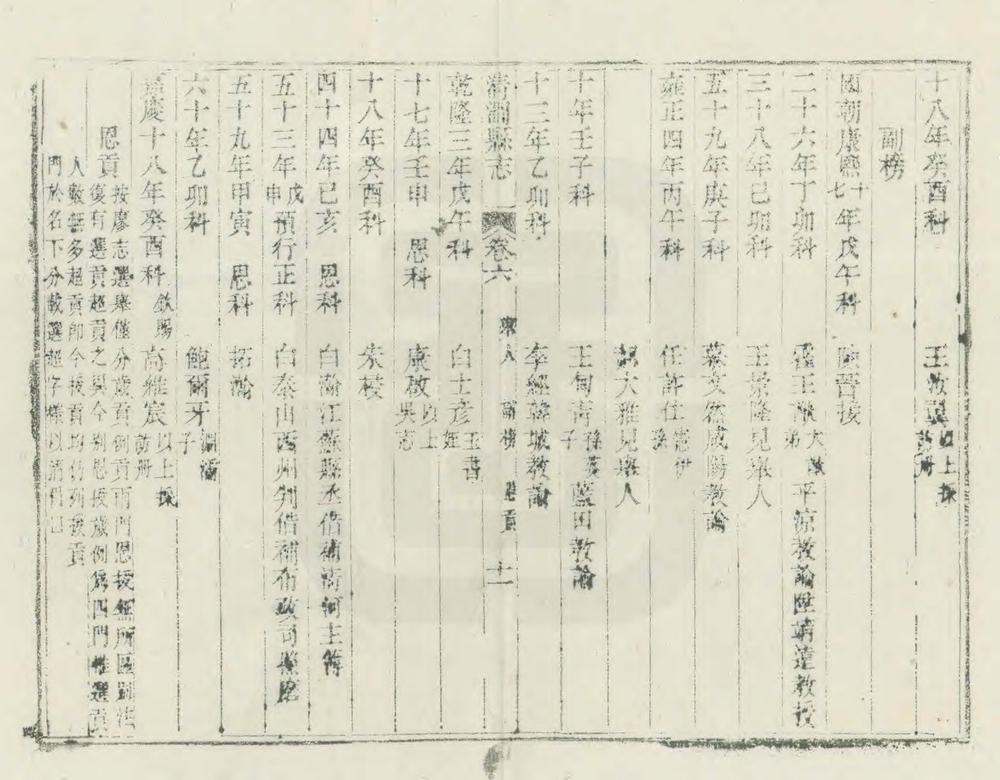 十八年癸酉科 王 以上採訪冊
副榜
國朝康熙十七年戊午科 晉接
二十六年丁卯科 霍王 弟 平凉教諭陞靖遠教授
三十八年己卯科 王崇隆見舉人
五十九年庚子科 文然咸陽教諭
雍正四年丙午科 任許仕 孫
大雅見舉人
十年壬子科 王甸青 孫 子 藍田教諭
十三年乙卯科 李經韓城教諭
清澗縣志 卷六 舉人 副榜 恩貢 十一
乾隆三年戊午科 白士彥 玉書 姪
十七年壬申 恩科 康敘 以上吳志
十八年癸酉科 朱棪
四十四年己亥 恩科 白瀚江蘇縣丞借補 河主簿
五十三年戊申預行正科 白泰山西州判借補布政司照磨
五十九年甲寅 恩科 拓瀚
六十年乙卯科 鮑爾牙 子
嘉慶十八年癸酉科 欽賜 高維宸 以上採訪冊
恩貢 按廖志選舉僅分歲貢例貢兩門恩拔無所區別
復有選貢超貢之與今別恩拔歲例為四門惟選貢
人數無多超貢即今拔貢均仿列拔貢
門於名下分載選超字樣以清